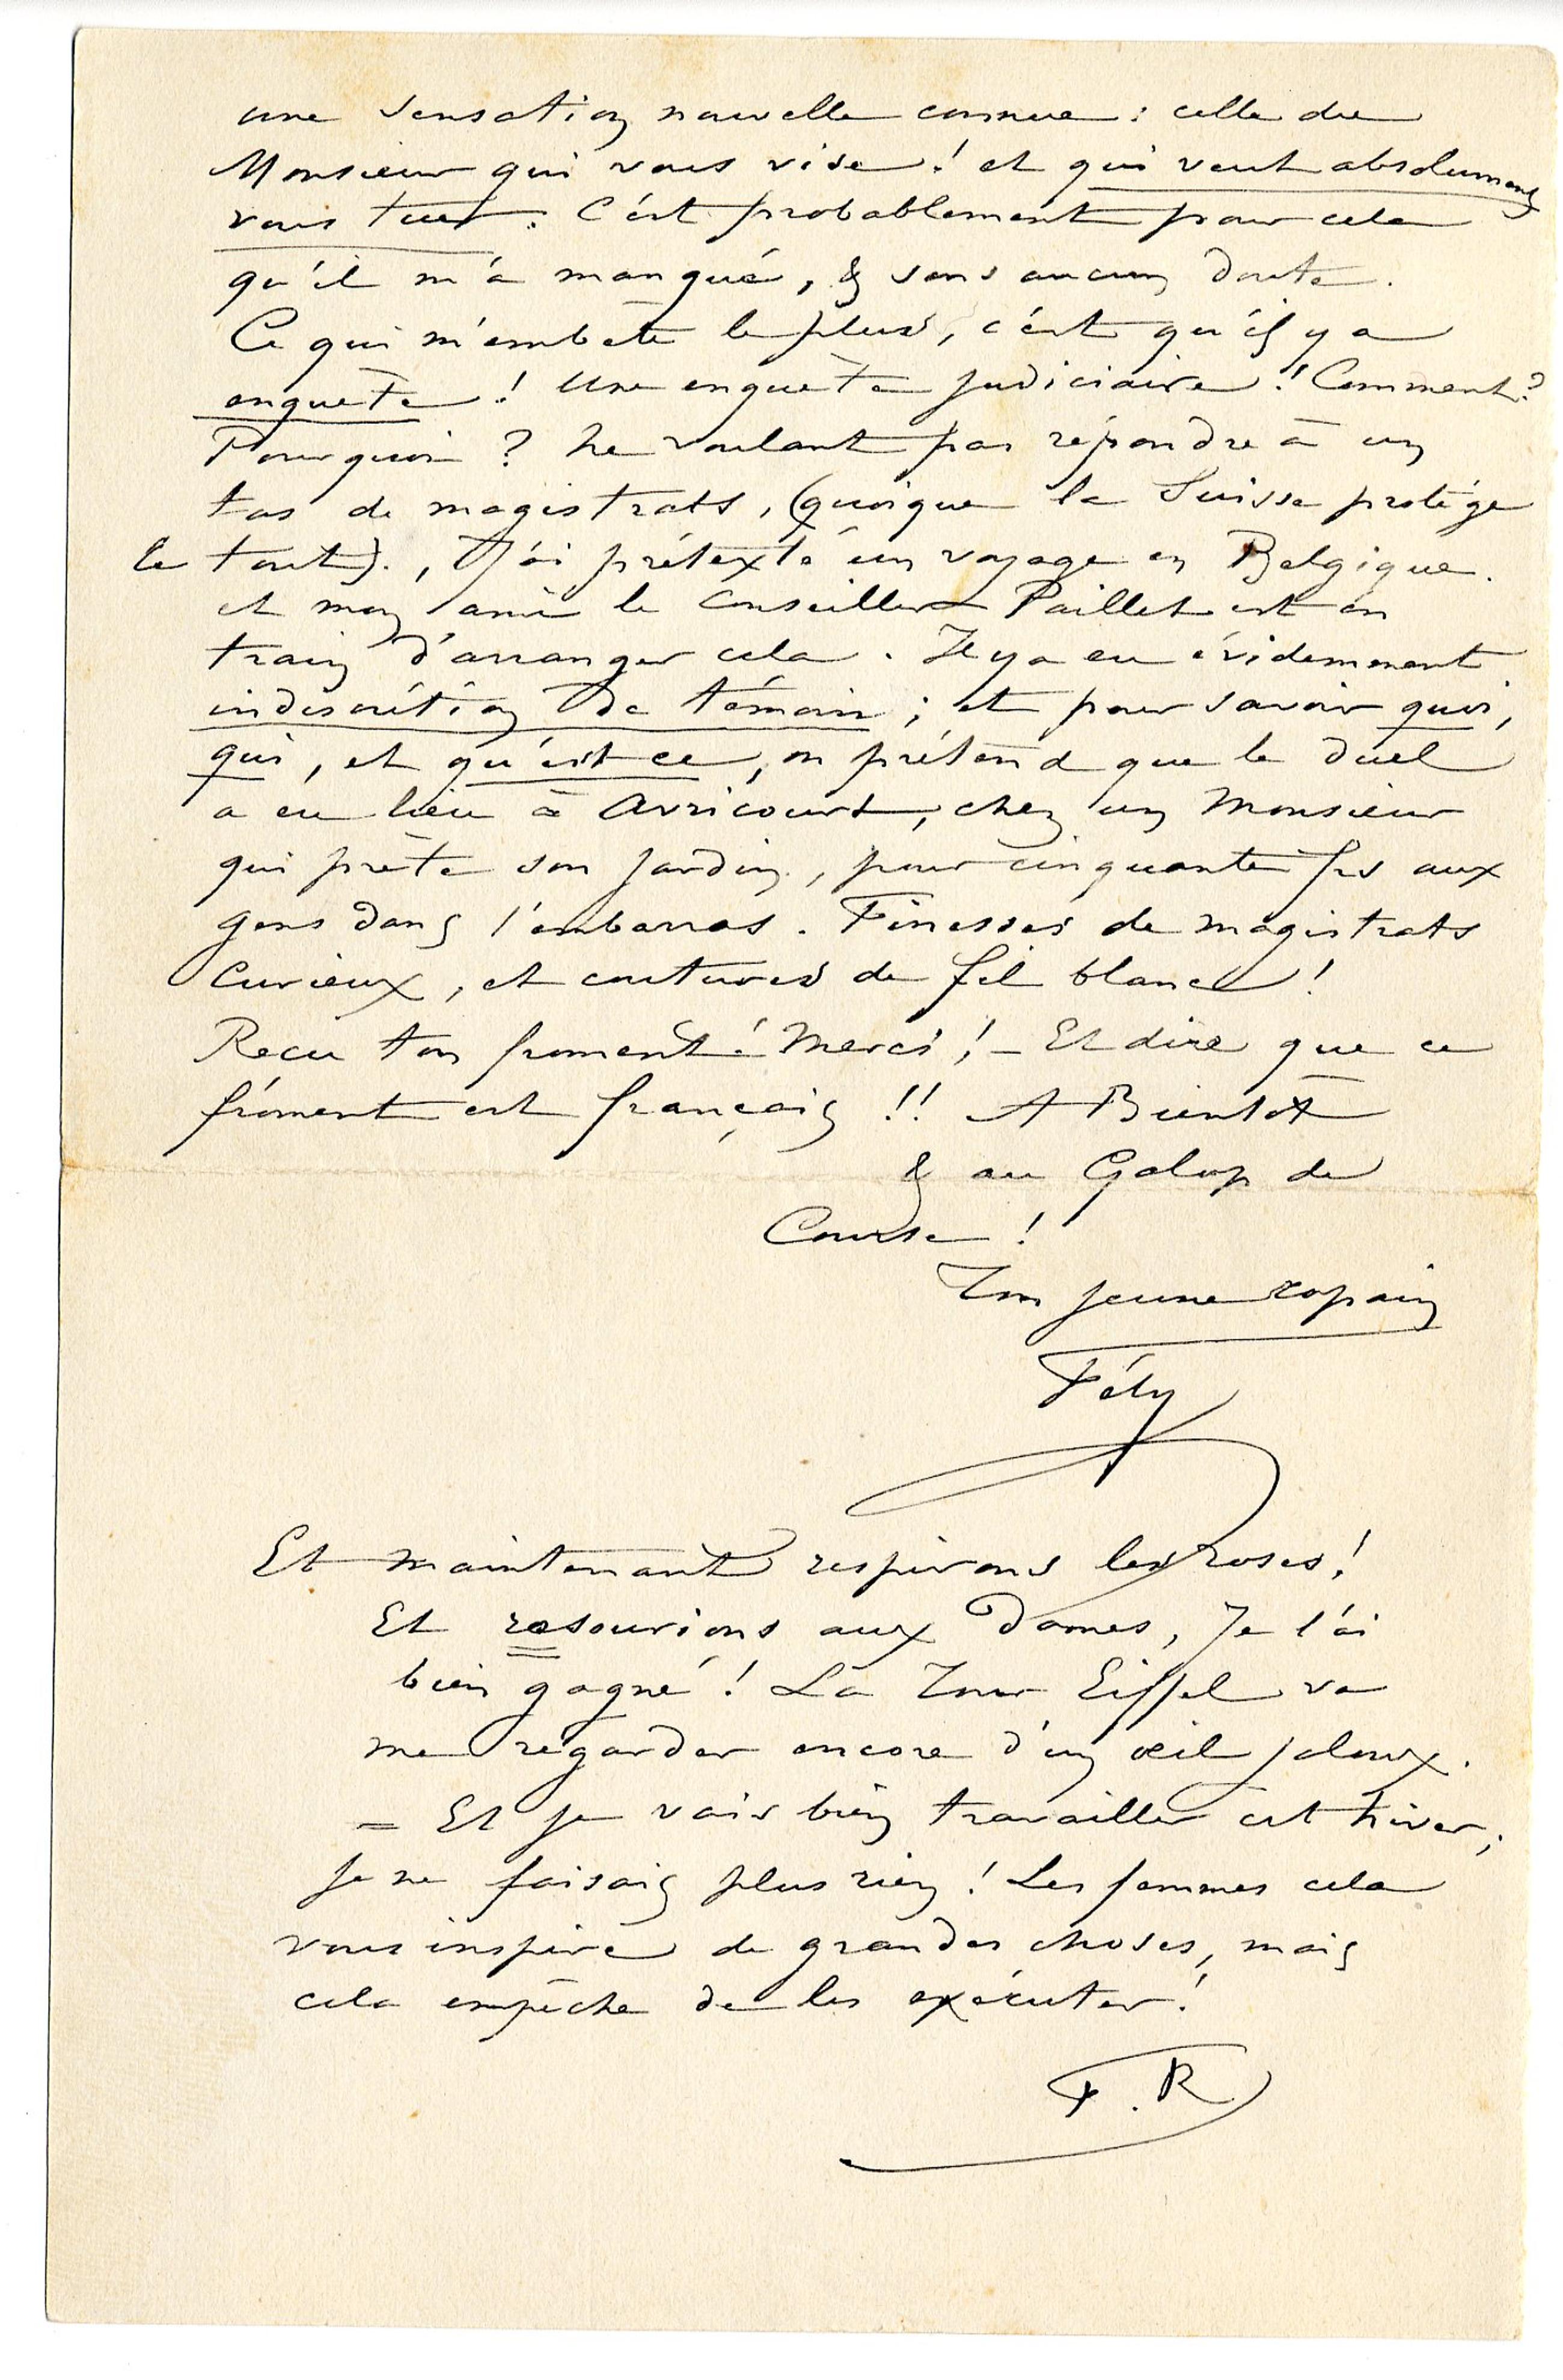 une sensation nouvelle connue : celle du
Monsieur qui vous vise ! et qui veut absolument
vous tuer. C'est probablement pour cela
qu'il m'a manqué, & sans aucun doute.
Ce qui m'embête le plus, c'est qu'il y a
enquête ! Une enquête judiciaire ! Comment ?
Pourquoi ? Ne voulant pas répondre à un
tas de magistrats, (quoique la Suisse protège
le tout)., J'ai prétexté un voyage en Belgique.
et mon ami le Conseiller Paillet est en
train d'arranger cela. Il y a eu évidemment
indiscrétion de témoin ; et pour savoir quoi,
qui, et qu'est ce, on prétend que le duel
a eu lieu à Avricourt, chez un Monsieur
qui prête son jardin, pour cinquante frs aux
gens dans l'embarras. Finesses de magistrats
Curieux, et coutures de fil blanc !
Recu ton froment ! Merci ! – Et dire que ce
froment est français !! A Bientôt
& au Galop de
Course !
Ton jeune copain
Fély
Et maintenant respirons les roses !
Et resourions aux Dames, Je l'ai
bien gagné ! La Tour Eiffel va
me regarder encore d'un œil jaloux.
= Et je vais bien travailler cet hiver,
je ne faisais plus rien ! Les femmes cela
vous inspire de grandes choses, mais
cela empêche de les exécuter !
F. R